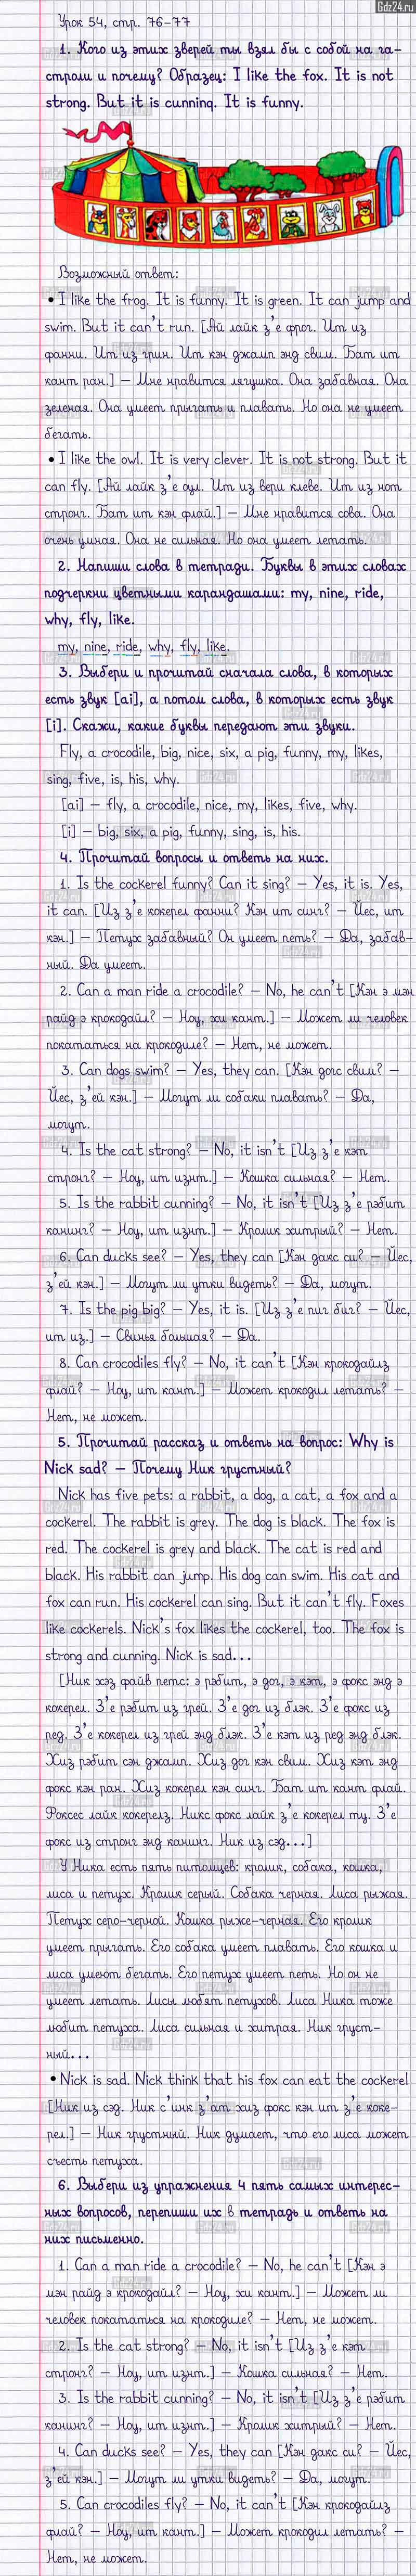 Gdz24.ru
Урок 54, стр. 76-77
1. Кого из этих зверей ты взял бы с собой на га-
строли и почему? Образец: I like the fox. It is not
strong. But it is cunning. It is funny.
Возможный ответ:
• I like the frog. It is funny. It is green. It can jump and
swim. But it can't run. [Ай лайк з'е фрог. Ит из
фанни. Ит из грин. Ит кэн джамп энд свим. Бат ит
кант ран.] – Мне нравится лягушка. Она забавная. Она
зеленая. Она умеет прыгать и плавать. Но она не умеет
бегать.
• I like the owl. It is very clever. It is not strong. But it
can fly. [Ай лайк з'е оул. Ит из вери клеве. Ит из нот
стронг. Бат ит кэн флай.] – Мне нравится сова. Она
очень умная. Она не сильная. Но она умеет летать.
2. Напиши слова в тетради. Буквы в этих словах
подчеркни цветными карандашами: my, nine, ride,
why, fly, like.
my, nine, ride, why, fly, like.
3. Выбери и прочитай сначала слова, в которых
есть звук [ai], а потом слова, в которых есть звук
[i]. Скажи, какие буквы передают эти звуки.
Fly, a crocodile, big, nice, six, a pig, funny, my, likes,
sing, five, is, his, why.
[ai] – fly, a crocodile, nice, my, likes, five, why.
[i] – big, six, a pig, funny, sing, is, his.
4. Прочитай вопросы и ответь на них.
1. Is the cockerel funny? Can it sing? – Yes, it is. Yes,
it can. [Из з'е кокерел фанни? Кэн ит синг? – Йес, ит
кэн.] – Петух забавный? Он умеет петь? – Да, забав-
ный. Да умеет.
2. Can a man ride a crocodile? – No, he can't [Кэн э мэн
райд э крокодайл? – Ноу, хи кант.] – Может ли человек
покататься на крокодиле? – Нет, не может.
3. Can dogs swim? – Yes, they can. [Кэн догс свим? –
Йес, з'ей кэн.] – Могут ли собаки плавать? – Да,
могут.
4. Is the cat strong? – No, it isn't [Из з'е кэт
стронг? – Ноу, ит изнт.] – Кошка сильная? – Нет.
5. Is the rabbit cunning? – No, it isn't [Из з'е рэбит
канинг? – Ноу, ит изнт.] – Кролик хитрый? – Нет.
6. Can ducks see? – Yes, they can [Кэн дакс си? – Йес,
з'ей кэн.] – Могут ли утки видеть? – Да, могут.
7. Is the pig big? – Yes, it is. [Из з'е пиг биг? – Йес,
ит из.] – Свинья большая? – Да.
8. Can crocodiles fly? – No, it can't [Кэн крокодайлз
флай? – Ноу, ит кант.] – Может крокодил летать? –
Нет, не может.
5. Прочитай рассказ и ответь на вопрос: Why is
Nick sad? – Почему Ник грустный?
Nick has five pets: a rabbit, a dog, a cat, a fox and a
cockerel. The rabbit is grey. The dog is black. The fox is
red. The cockerel is grey and black. The cat is red and
black. His rabbit can jump. His dog can swim. His cat and
fox can run. His cockerel can sing. But it can't fly. Foxes
like cockerels. Nick's fox likes the cockerel, too. The fox is
strong and cunning. Nick is sad...
[Ник хэз файв петс: э рэбит, э дог, э кэт, э фокс энд э
кокерел. З'е рэбит из грей. З'е дог из блэк. З'е фокс из
ред. З'е кокерел из грей энд блэк. З'е кэт из ред энд блэк.
Хиз рэбит сэн джамп. Хиз дог кэн свим. Хиз кэт энд
фокс кэн ран. Хиз кокерел кэн синг. Бат ит кант флай.
Фоксес лайк кокерелз. Никс фокс лайк з'е кокерел ту. З'е
фокс из стронг энд канинг. Ник из сэд...]
У Ника есть пять питомцев: кролик, собака, кошка,
лиса и петух. Кролик серый. Собака черная. Лиса рыжая.
Петух серо-черной. Кошка рыже-черная. Его кролик
умеет прыгать. Его собака умеет плавать. Его кошка и
лиса умеют бегать. Его петух умеет петь. Но он не
умеет летать. Лисы любят петухов. Лиса Ника тоже
любит петуха. Лиса сильная и хитрая. Ник груст-
ный...
• Nick is sad. Nick think that his fox can eat the cockerel
[Ник из сэд. Ник с'инк з'ат хиз фокс кэн ит з'е коке-
рел.] – Ник грустный. Ник думает, что его лиса может
съесть петуха.
6. Выбери из упражнения 4 пять самых интерес-
ных вопросов, перепиши их в тетрадь и ответь на
них письменно.
1. Can a man ride a crocodile? – No, he can't [Кэн э
мэн райд э крокодайл? – Ноу, хи кант.] – Может ли
человек покататься на крокодиле? – Нет, не может.
2. Is the cat strong? – No, it isn't [Из з'е кэт
стронг? – Ноу, ит изнт.] – Кошка сильная? – Нет.
3. Is the rabbit cunning? – No, it isn't [Из з'е рэбит
канинг? – Ноу, ит изнт.] – Кролик хитрый? – Нет.
4. Can ducks see? – Yes, they can [Кэн дакс си? – Йес,
з'ей кэн.] – Могут ли утки видеть? – Да, могут.
5. Can crocodiles fly? – No, it can't [Кэн крокодайлз
флай? – Ноу, ит кант.] – Может крокодил летать? –
Нет, не может.